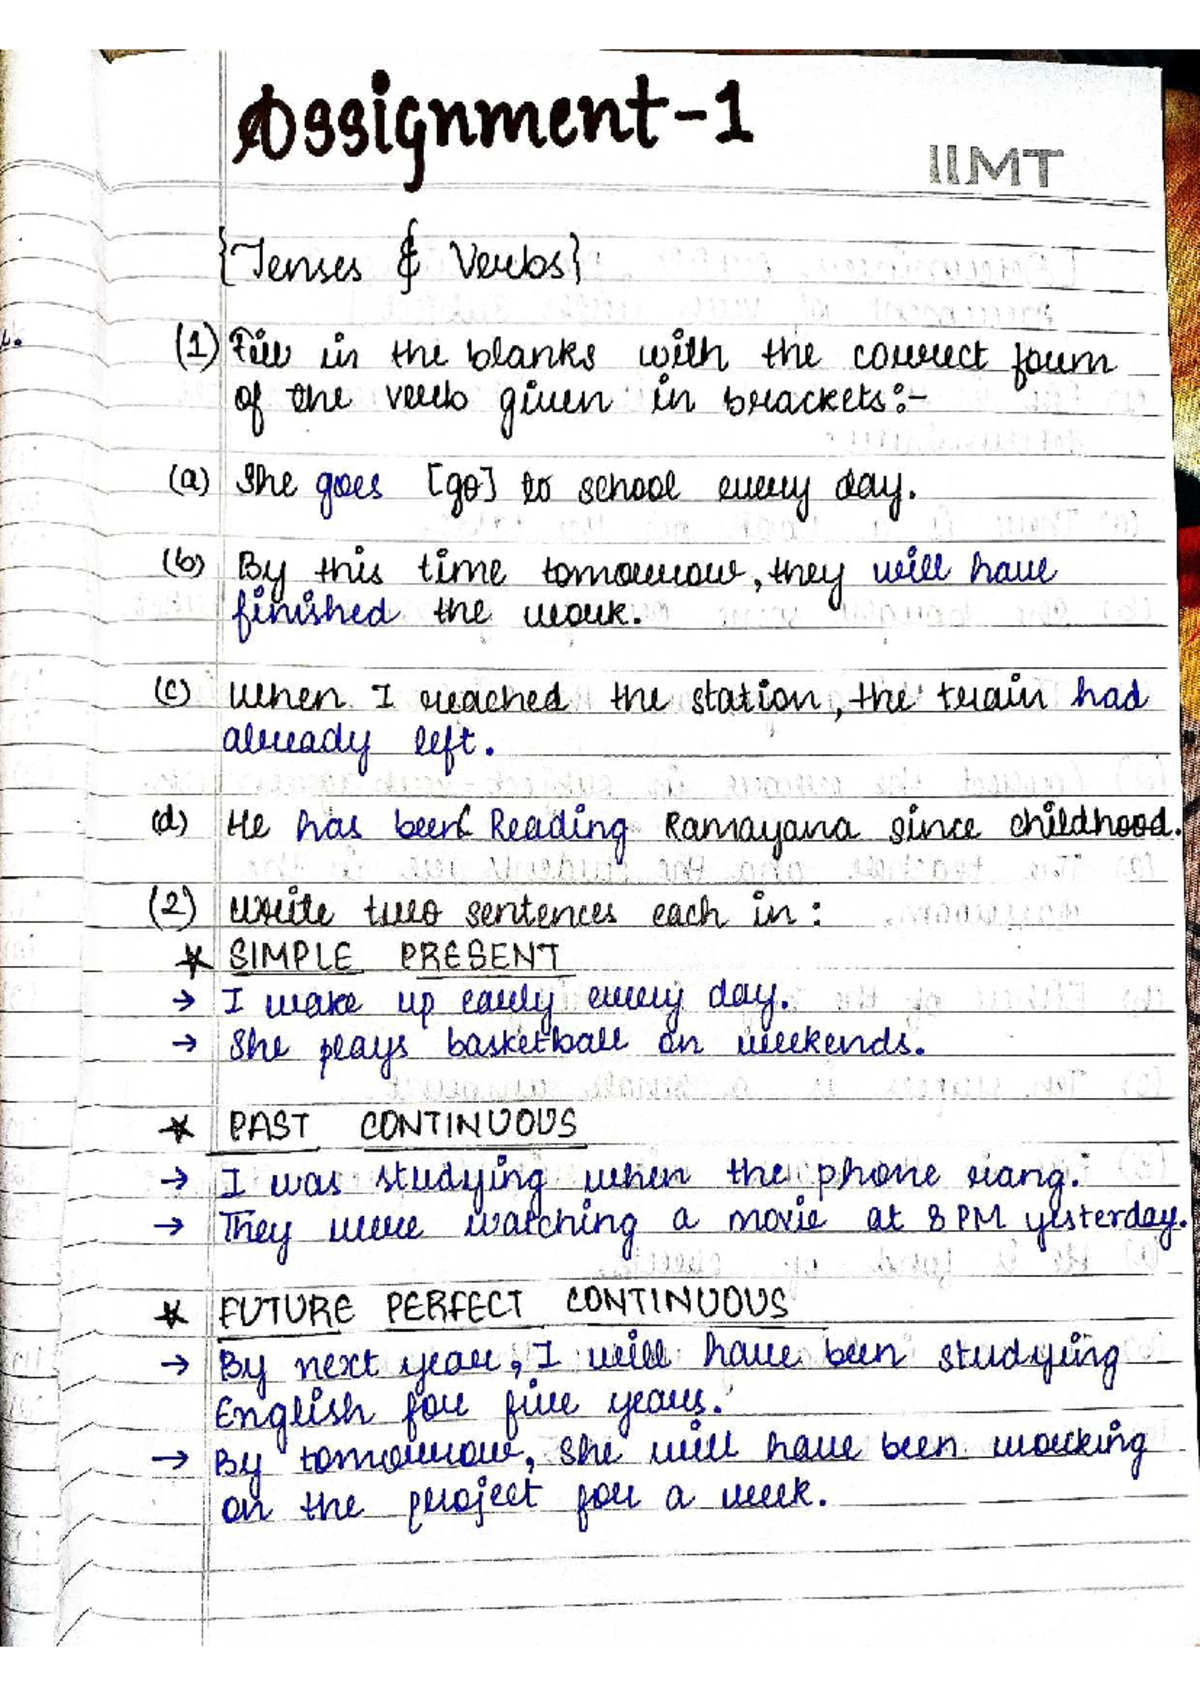 Assignment-1
IIMT
{Tenses & Verbs}
(1) Fill in the blanks with the correct form
of the verb given in brackets:-
(a) She goes [go] to school every day.
(b) By this time tomorrow, they will have
finished the work.
(c) When I reached the station, the train had
already left.
(d) He has been Reading Ramayana since childhood.
(2) Write two sentences each in :
★ SIMPLE PRESENT
→ I wake up early every day.
→ She plays basketball on weekends.
★ PAST CONTINUOUS
→ I was studying when the phone rang.
→ They were watching a movie at 8 PM yesterday.
★ FUTURE PERFECT CONTINUOUS
→ By next year, I will have been studying
English for five years.
→ By tomorrow, she will have been working
on the project for a week.